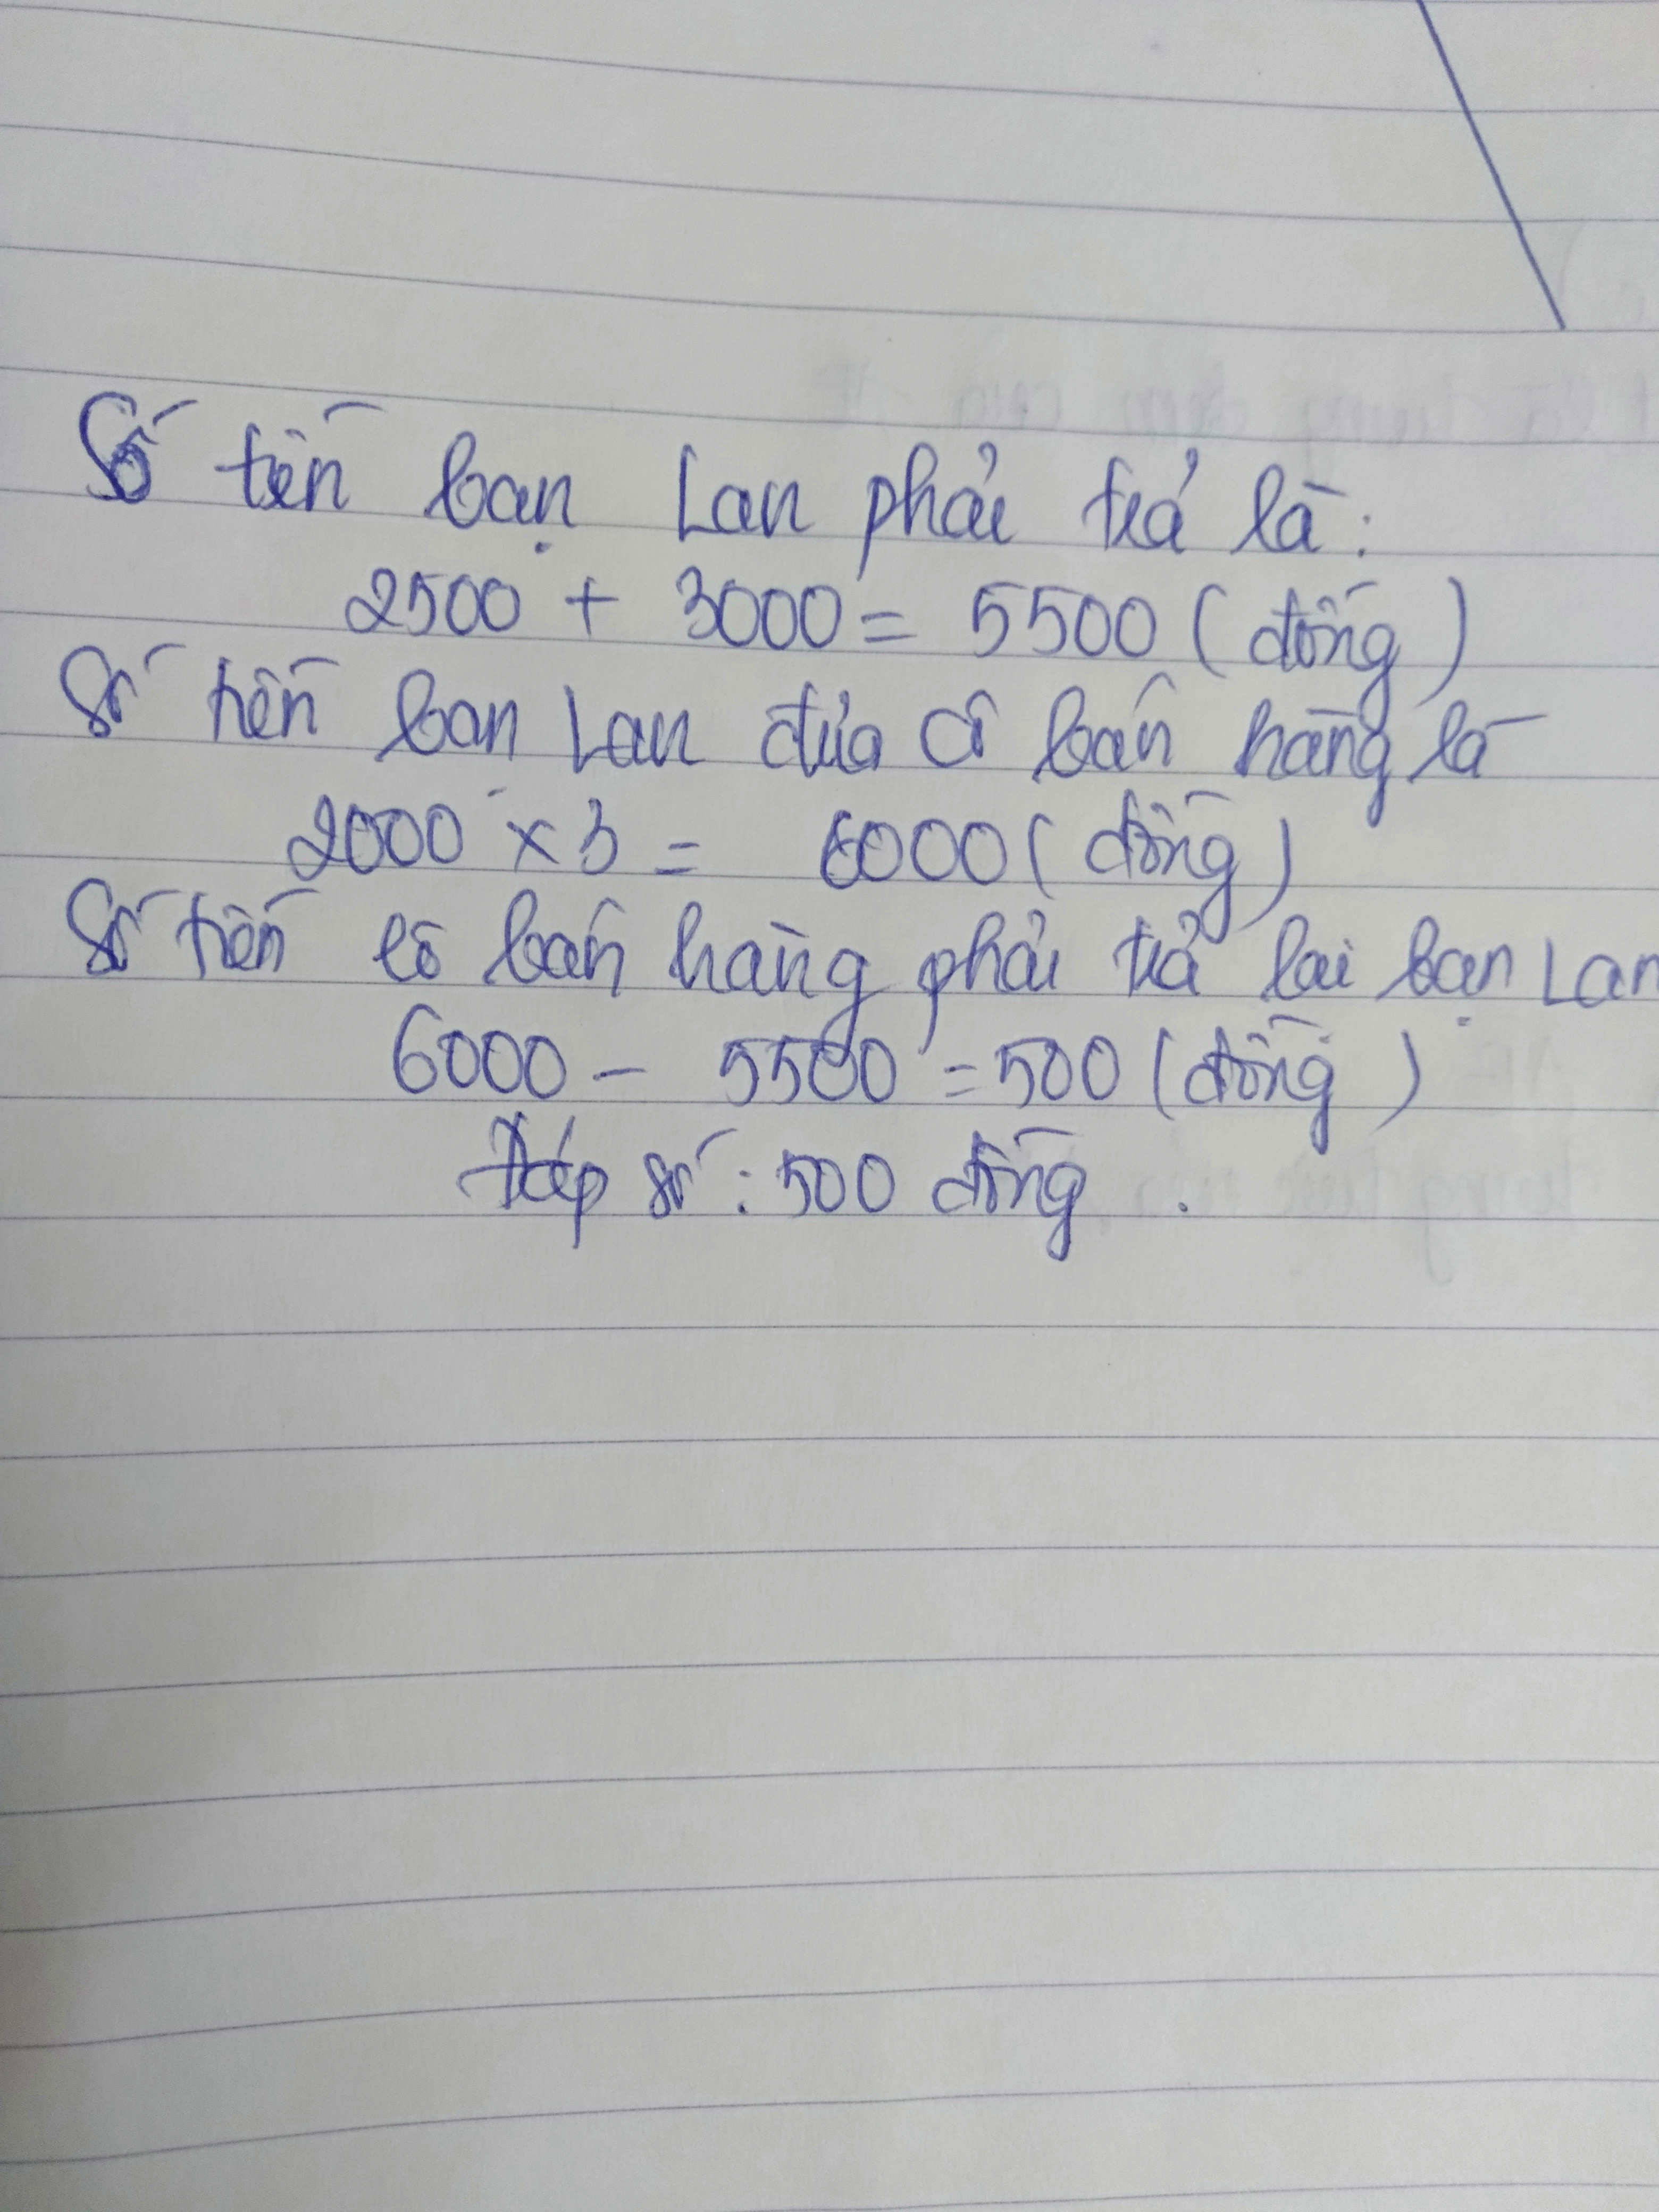 Số tiền bạn Lan phải trả là:
2500 + 3000 = 5500 (đồng)
Số tiền bạn Lan đưa cô bán hàng là
2000 x 3 = 6000 (đồng)
Số tiền cô bán hàng phải trả lại bạn Lan
6000 - 5500 = 500 (đồng)
Đáp số: 500 đồng.